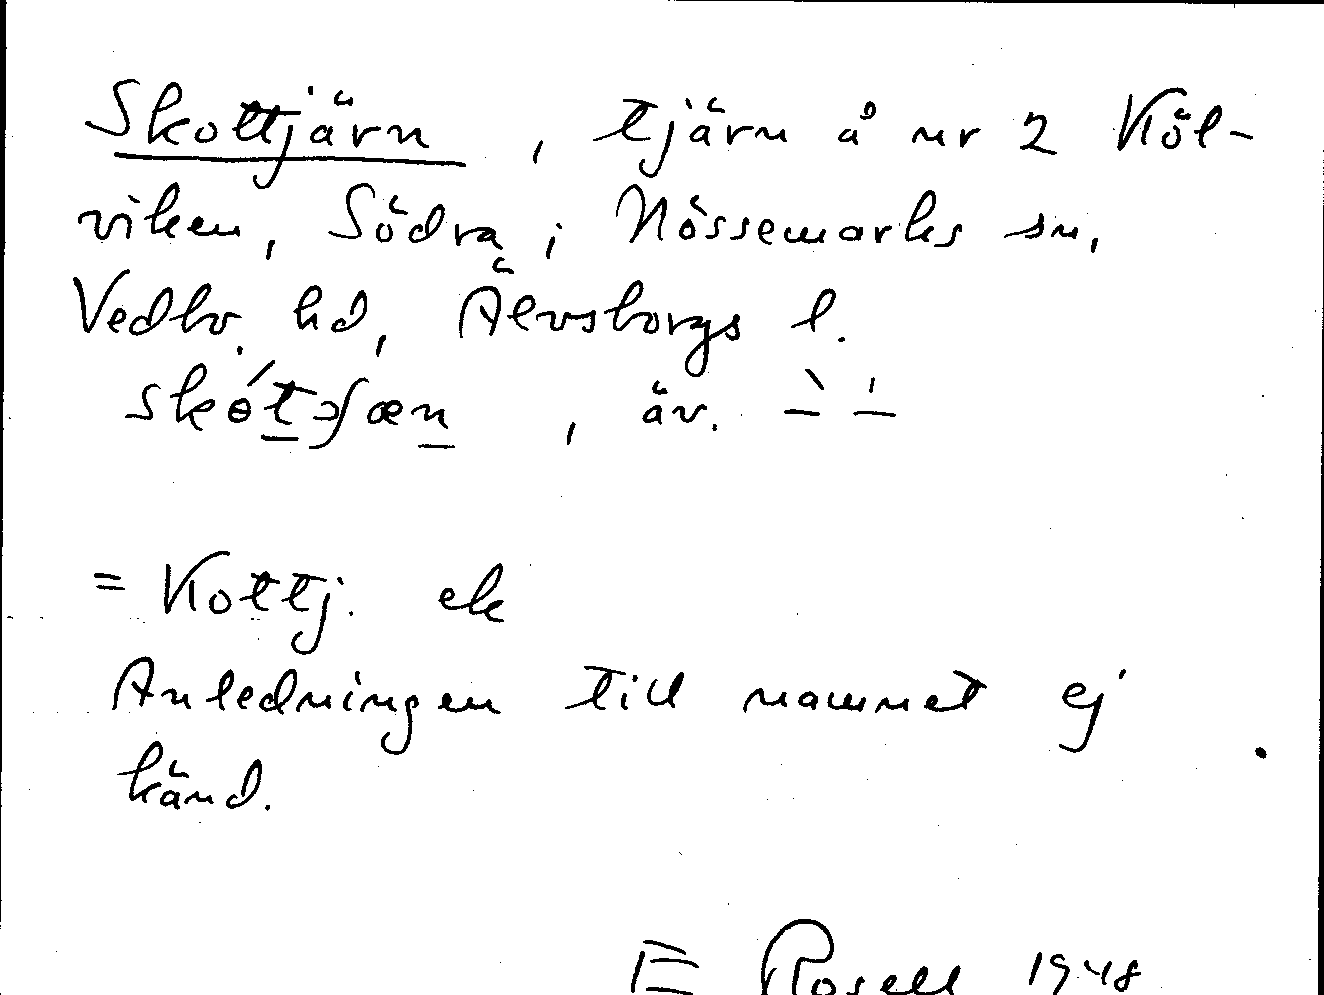 Skottjärn, tjärn å nr 2 Köl-
viken, Södra i Nössemarks sn,
Vedbo hd, Älvsborgs l.
, äv.
= Kottj. ek
Anledningen till namnet ej
känd.
E Rosell 1948